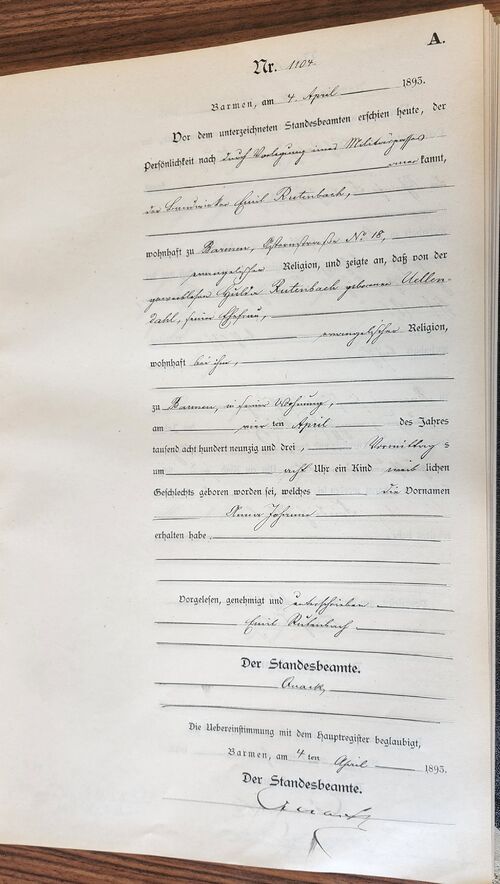 A.
Nr. 1104
Barmen, am 4. April 1893.
Vor dem unterzeichneten Standesbeamten erschien heute, der
Persönlichkeit nach durch Vorlegung eines Militärpasses
anerkannt,
der Bandwirker Emil Rutenbach,
wohnhaft zu Barmen, No 18,
evangelischer Religion, und zeigte an, daß von der
gewerblosen Hulda Rutenbach geborenen Uellen-
dahl, seiner Ehefrau,
evangelischer Religion,
wohnhaft bei ihm,
zu Barmen, in seiner Wohnung,
am vier ten April des Jahres
tausend acht hundert neunzig und drei, Vormittag s
um acht Uhr ein Kind weib lichen
Geschlechts geboren worden sei, welches die Vornamen
Anna Johanne
erhalten habe.
Vorgelesen, genehmigt und unterschrieben
Emil Rutenbach
Der Standesbeamte.
Die Uebereinstimmung mit dem Hauptregister beglaubigt,
Barmen, am 4 ten April 1893.
Der Standesbeamte.